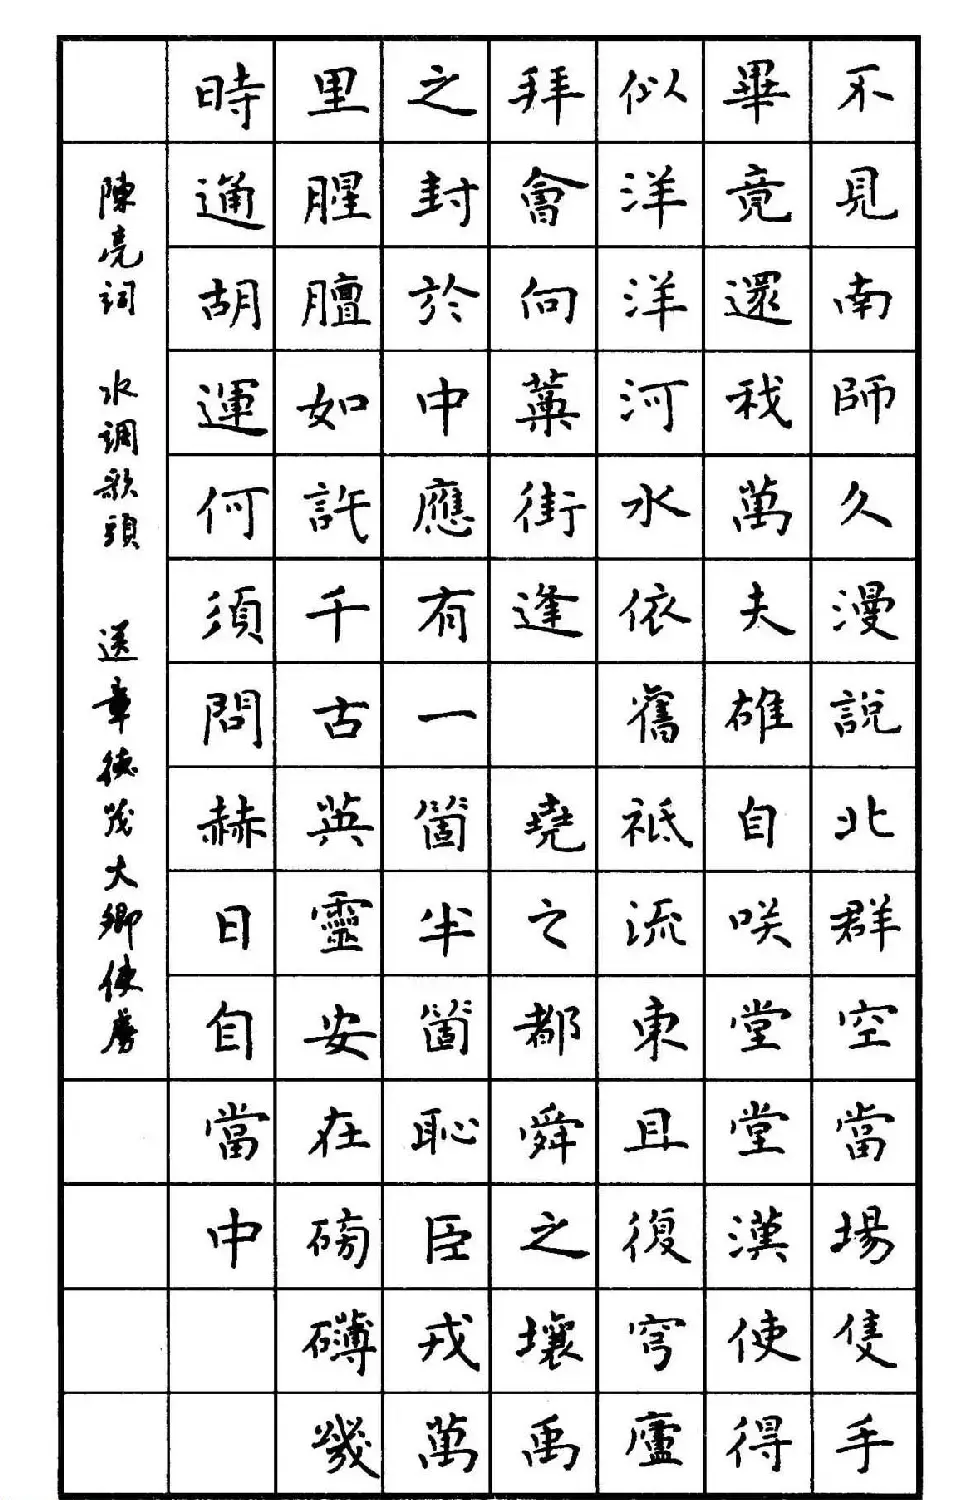 不見南師久漫說北群空當場隻手
畢竟還我萬夫雄自咲堂堂漢使得
似洋洋河水依舊祗流東且復穹廬
拜會向藁街逢 堯之都舜之壤禹
之封於中應有一箇半箇恥臣戎萬
里腥膻如許千古英靈安在磅礴幾
時通胡運何須問赫日自當中
陳亮词 水调歌頭 送章德茂大卿使虜